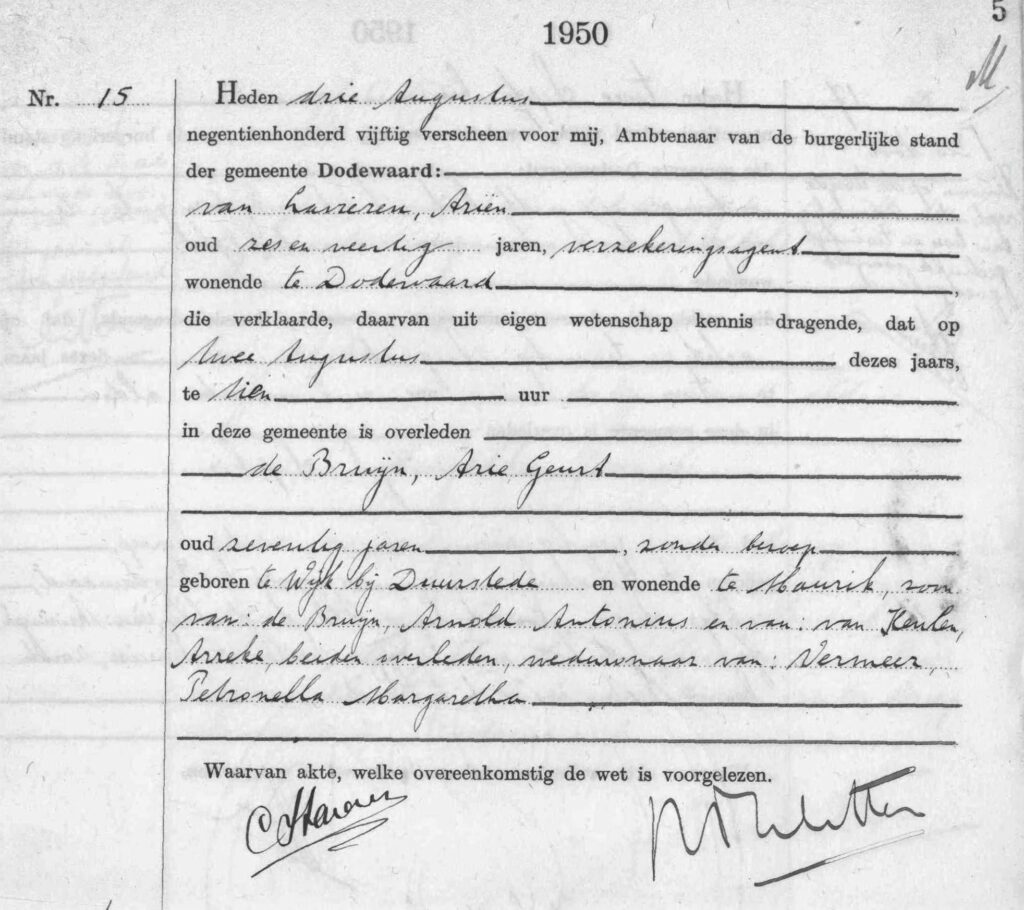 5
1950
M
Nr. 15
Heden drie Augustus
negentienhonderd vijftig verscheen voor mij, Ambtenaar van de burgerlijke stand
der gemeente Dodewaard:
van Lavieren, Ariën
oud zes en veertig jaren, verzekeringsagent
wonende te Dodewaard,
die verklaarde, daarvan uit eigen wetenschap kennis dragende, dat op
twee Augustus dezes jaars,
te tien uur
in deze gemeente is overleden
de Bruijn, Arie Geurt
oud zeventig jaren, zonder beroep
geboren te Wijk bij Duurstede en wonende te Maurik, zoon
van: de Bruijn, Arnold Antonius en van: van Keulen,
Arreke, beiden overleden, weduwnaar van: Vermeer,
Petronella Margaretha
Waarvan akte, welke overeenkomstig de wet is voorgelezen.